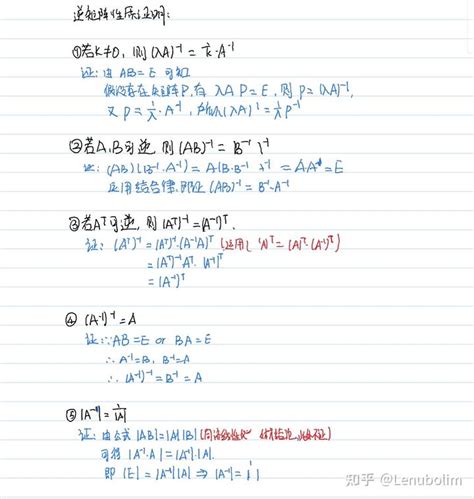 逆矩阵性质证明:
①若K≠0, 则(λA)⁻¹ = 1/k·A⁻¹
证: 由 AB=E 可知
假设存在矩阵P, 有 λAP=E, 则 P=(λA)⁻¹,
又 P=1/λ·A⁻¹, (λA)⁻¹=1/λ P⁻¹
②若A,B可逆, 则(AB)⁻¹=B⁻¹
证: (AB)(B⁻¹·A⁻¹)=A(B·B⁻¹ =AA⁻¹=E
运用结合律, 即证 (AB)⁻¹=B⁻¹·A⁻¹
③若Aᵀ可逆, 则 (Aᵀ)⁻¹=(A⁻¹)ᵀ.
证: (Aᵀ)⁻¹=(Aᵀ)⁻¹·(A⁻¹A)ᵀ (运用 ᵀ=(A)ᵀ·(A⁻¹)ᵀ)
=(Aᵀ)⁻¹Aᵀ·(A⁻¹)ᵀ
=(A⁻¹)ᵀ
④ (A⁻¹)⁻¹=A
证: ∵AB=E or BA=E
∴A⁻¹=B, B⁻¹=A
∴(A⁻¹)⁻¹=B⁻¹=A
⑤|A⁻¹|=1/|A|
证: 由公式 |AB|=|A||B|
可得 |A⁻¹·A|=|A⁻¹|·|A|
即 |E|=|A⁻¹||A| ⇒ |A⁻¹|=
知乎 @Lenubolim